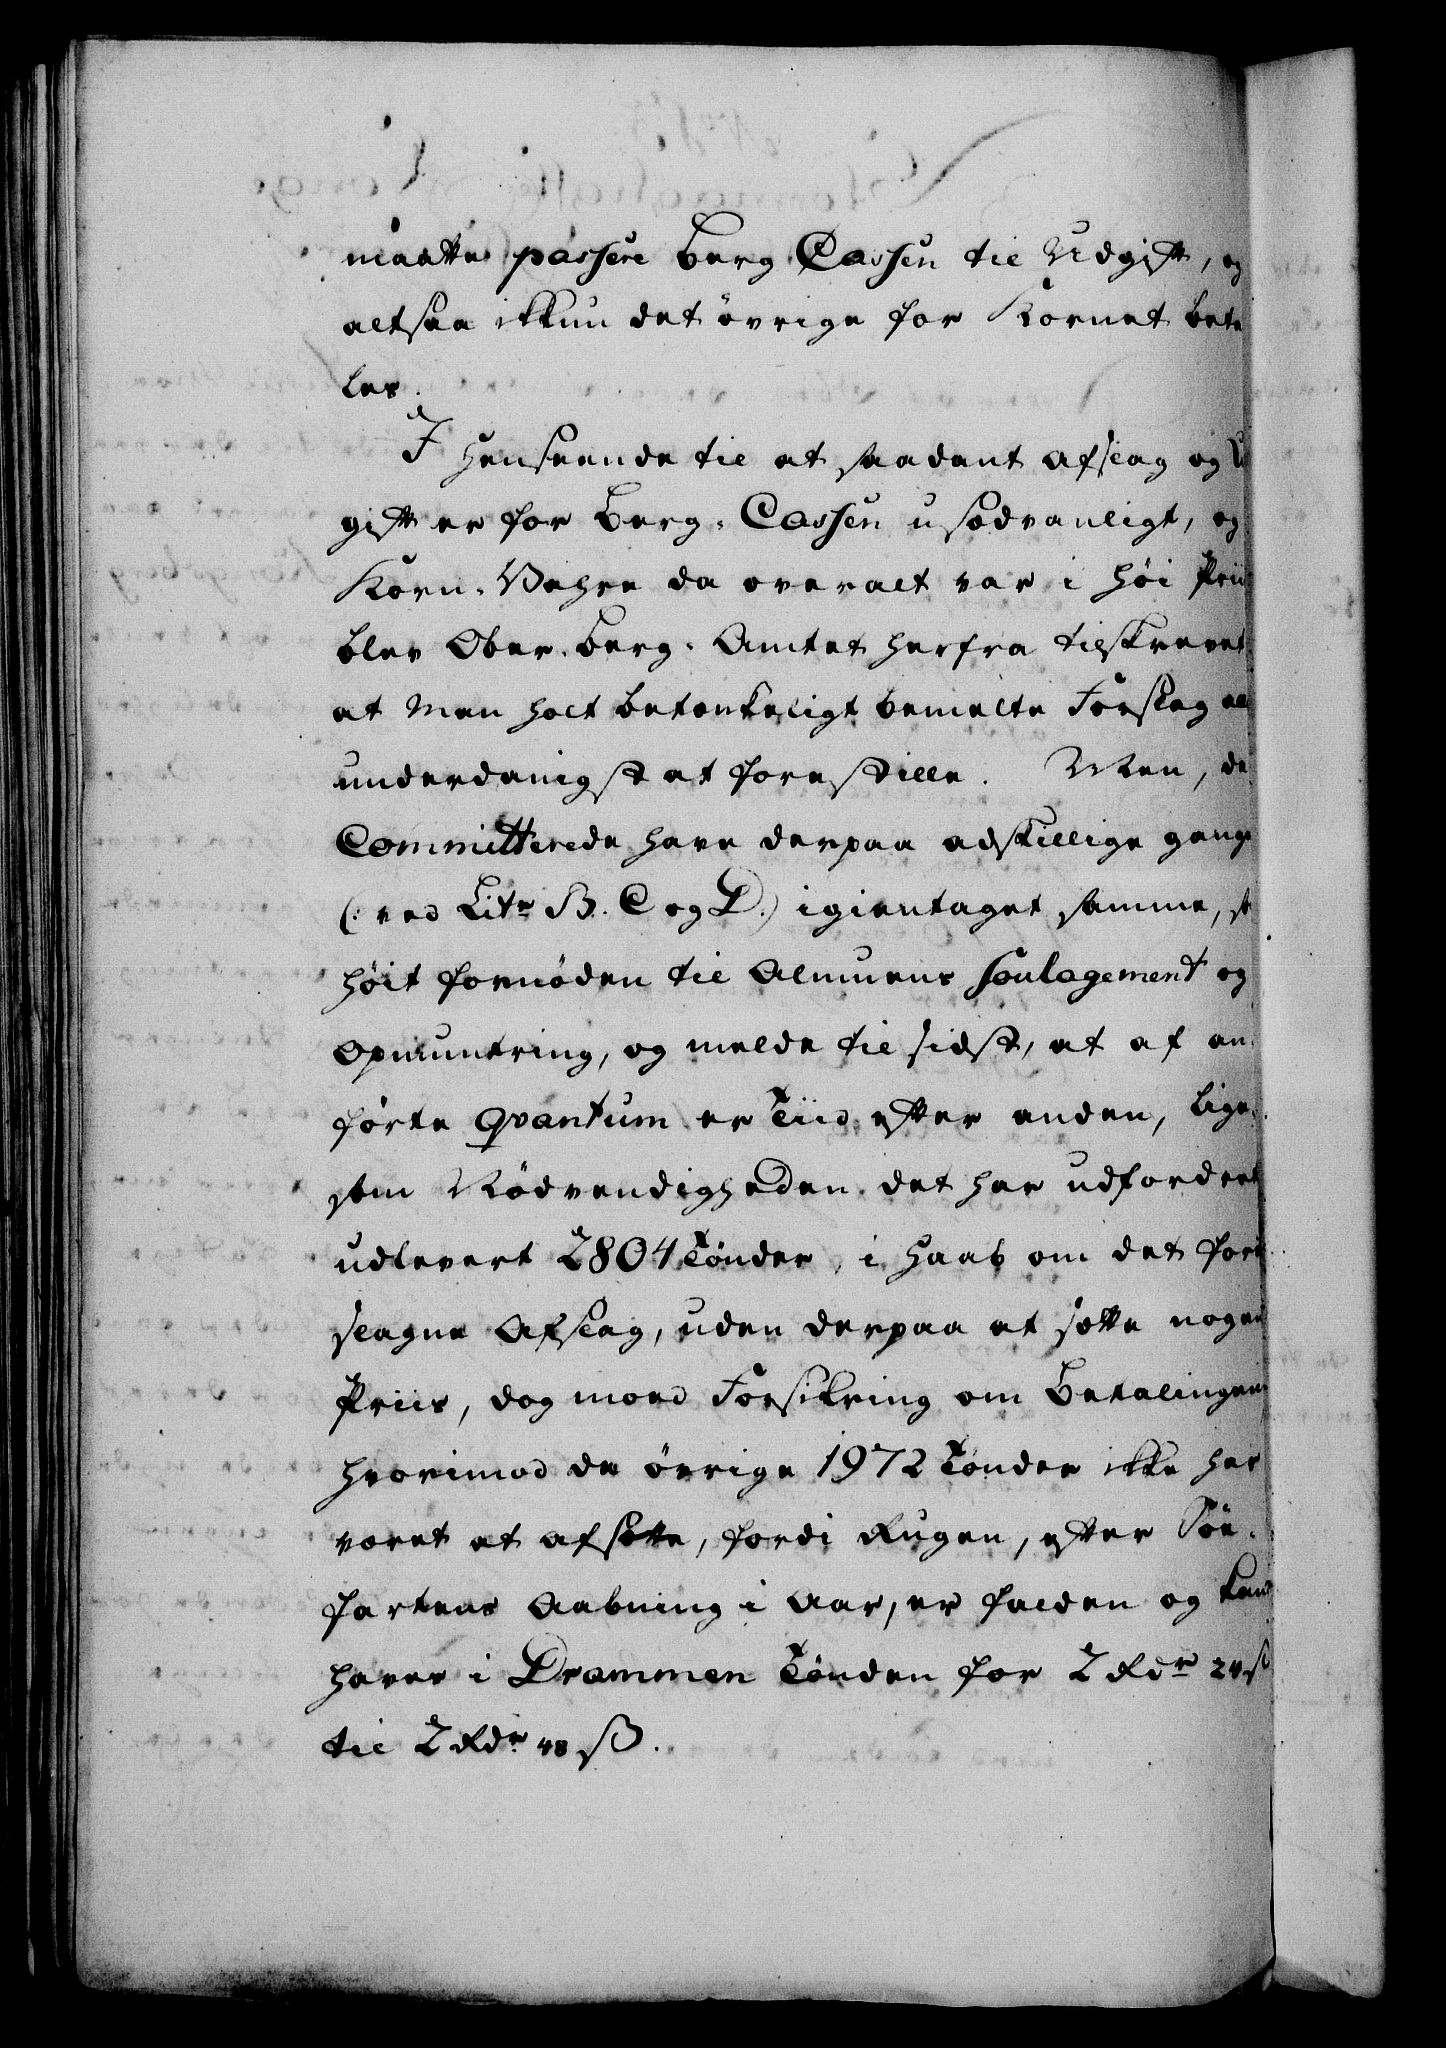 maatte passere Berg Cassen til Udgift, og
altsaa ikkun det övrige for Kornet beta
les.
I Henseende til at saadant Afslag og U
gift er for Berg-Cassen usædvanligt, og
Korn-Vahre da overalt var i höi Priis
blev Ober-Berg-Amtet herfra tilskrevet
at Man holt betænkeligt bemelte Forslag all
underdanigst at forestille. Men, de
Committerede have derpaa adskillige gange
(: ved Litr B. C og D.) igientaget samme, so
höit fornöden til Almuens Soulagement og
Opmuntring, og melde til sidst, at af an-
förte Qvantum er Tiid efter anden, lige-
som Nödvendigheden det har udfordret
udlevert 2804 Tönder, i Haab om det fore
slagne Afslag, uden derpaa at sætte nogen
Priis, dog moed Forsikring om Betalingen
hvorimod de övrige 1972 Tönder ikke har
været at afsætte, fordi Rugen, efter Söe-
fartens Aabning i Aar, er falden og kand
haves i Drammen Tönden for 2 Rdr 24 ß
til 2 Rdr 48 ß.